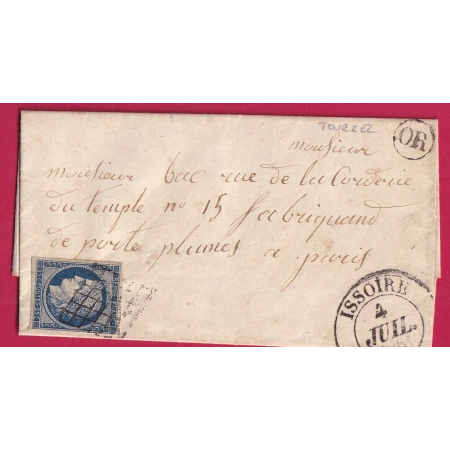 TOURZEL
OR
monsieur
monsieur bac rue de la Corderie
du temple n° 15 fabriquand
de porte plumes a paris
ISSOIRE
4
JUIL.